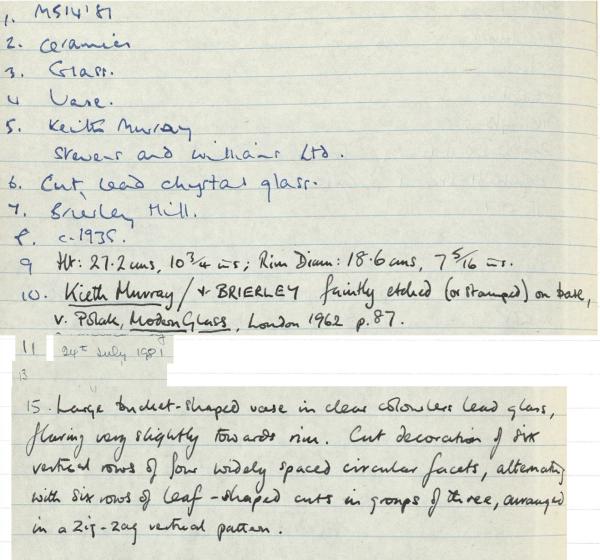 1. MS14'81
2. Ceramics
3. Glass.
4 Vase.
5. Keith Murray
Stevens and Williams Ltd.
6. Cut, lead chystal glass.
7. Brierley Hill.
8. c.1935.
9 Ht: 27.2 cms, 10 3/4 ins; Rim Diam: 18.6 cms, 7 5/16 ins.
10. Kieth Murray / + BRIERLEY faintly etched (or stamped) on base,
v. Polak, Modern Glass, London 1962 p.87.
11 24th July 1981
13
15. Large bucket-shaped vase in clear colourless lead glass,
flaring very slightly towards rim. Cut decoration of six
vertical rows of four widely spaced circular facets, alternating
with six rows of leaf-shaped cuts in groups of three, arranged
in a zig-zag vertical pattern.